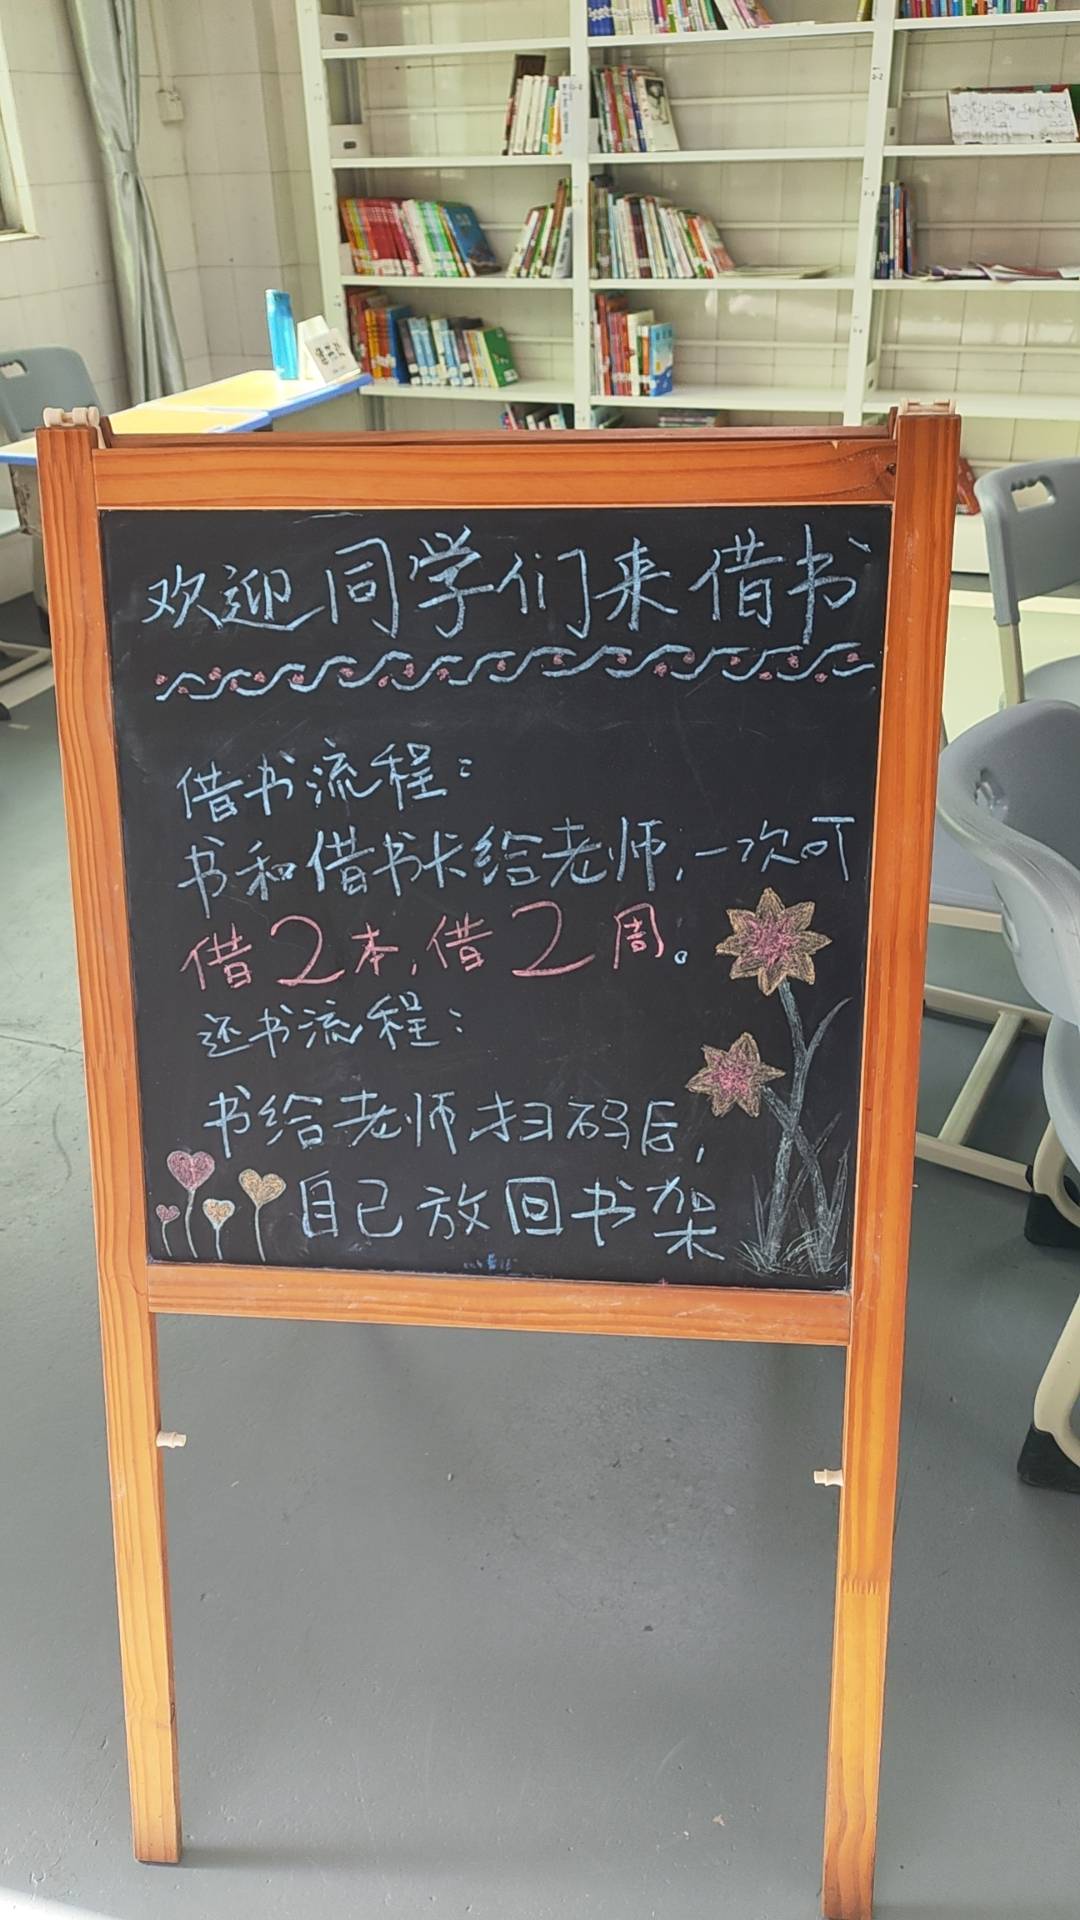 欢迎同学们来借书
借书流程：
书和借书卡给老师，一次可
借2本，借2周。
还书流程：
书给老师扫码后，
自己放回书架